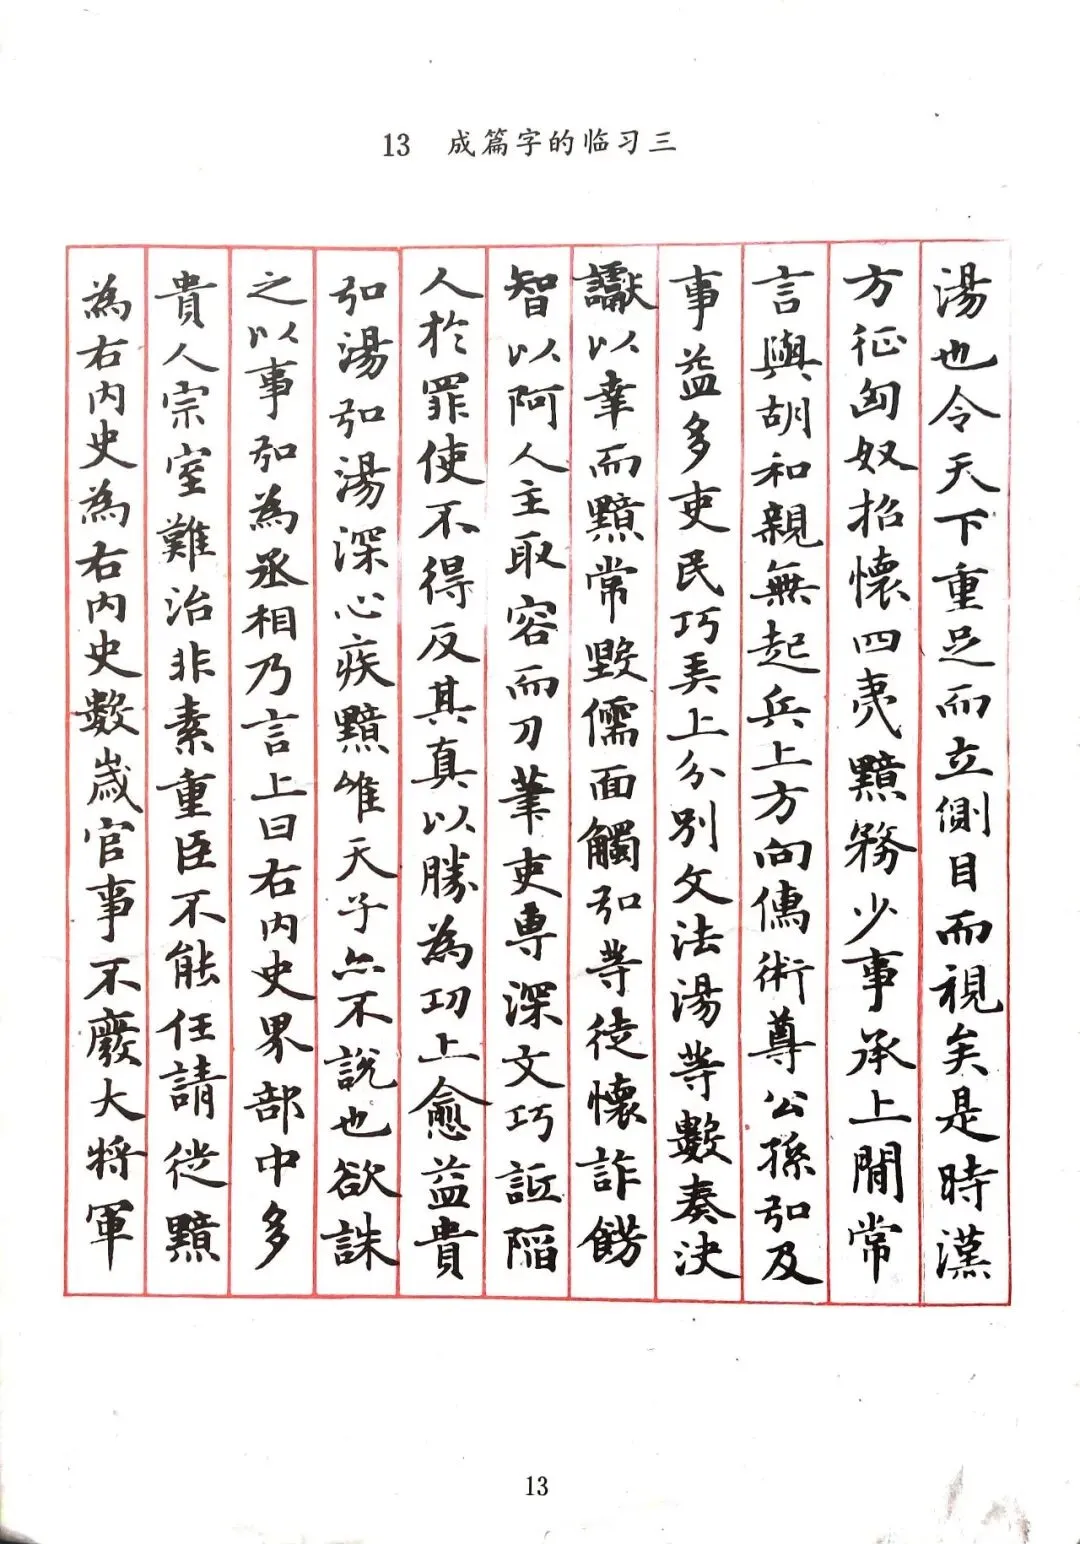 13 成篇字的临习三
湯也令天下重足而立側目而視矣是時漢
方征匈奴招懷四夷黯務少事承上閒常
言與胡和親無起兵上方向儒術尊公孫弘及
事益多吏民巧弄上分別文法湯等數奏決
讞以幸而黯常毀儒面觸弘等徒懷詐飾
智以阿人主取容而刀筆吏専深文巧詆陷
人於罪使不得反其真以勝為功上愈益貴
弘湯弘湯深心疾黯唯天子亦不說也欲誅
之以事弘為丞相乃言上曰右内史界部中多
貴人宗室難治非素重臣不能任請徙黯
為右内史為右内史數歲官事不廢大将軍
13